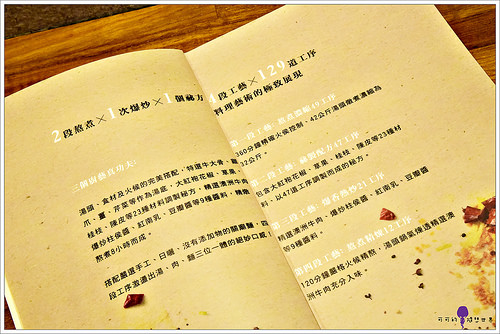 2段熬煮×1次爆炒×1個祕方
4段工藝×129道工序
料理藝術的極致展現
三個廚藝真功夫:
湯頭,食材及火候的完美搭配,特選牛大骨、雞
爪、薑、芹菜等作為湯底,大紅袍花椒、草果、
桂枝、陳皮等23種材料調製祕方,精選澳洲牛肉
爆炒柱侯醬、紅南乳、豆瓣醬等9種醬料,精燉
熬煮8小時而成。
搭配嚴選手工、日曬、沒有添加物的關廟麵,四
段工序激盪出湯、肉、麵三位一體的絕妙口感
第一段工藝: 熬煮濃縮49工序
360分鐘精確火侯控制,42公斤湯頭熬煮濃縮為
32公斤。
第二段工藝: 祕製配方47工序
包含大紅袍花椒、草果、桂枝、陳皮等23種材
料,以47道工序調製而成的秘方。
第三段工藝: 爆香熱炒21工序
精選澳洲牛肉,爆炒柱侯醬、紅南乳、豆瓣醬
等9種醬料。
第四段工藝: 熬煮精燉12工序
120分鐘嚴格火候精熬,湯頭鍋氣燻透精選澳
洲牛肉充分入味。
可可的夢想世界